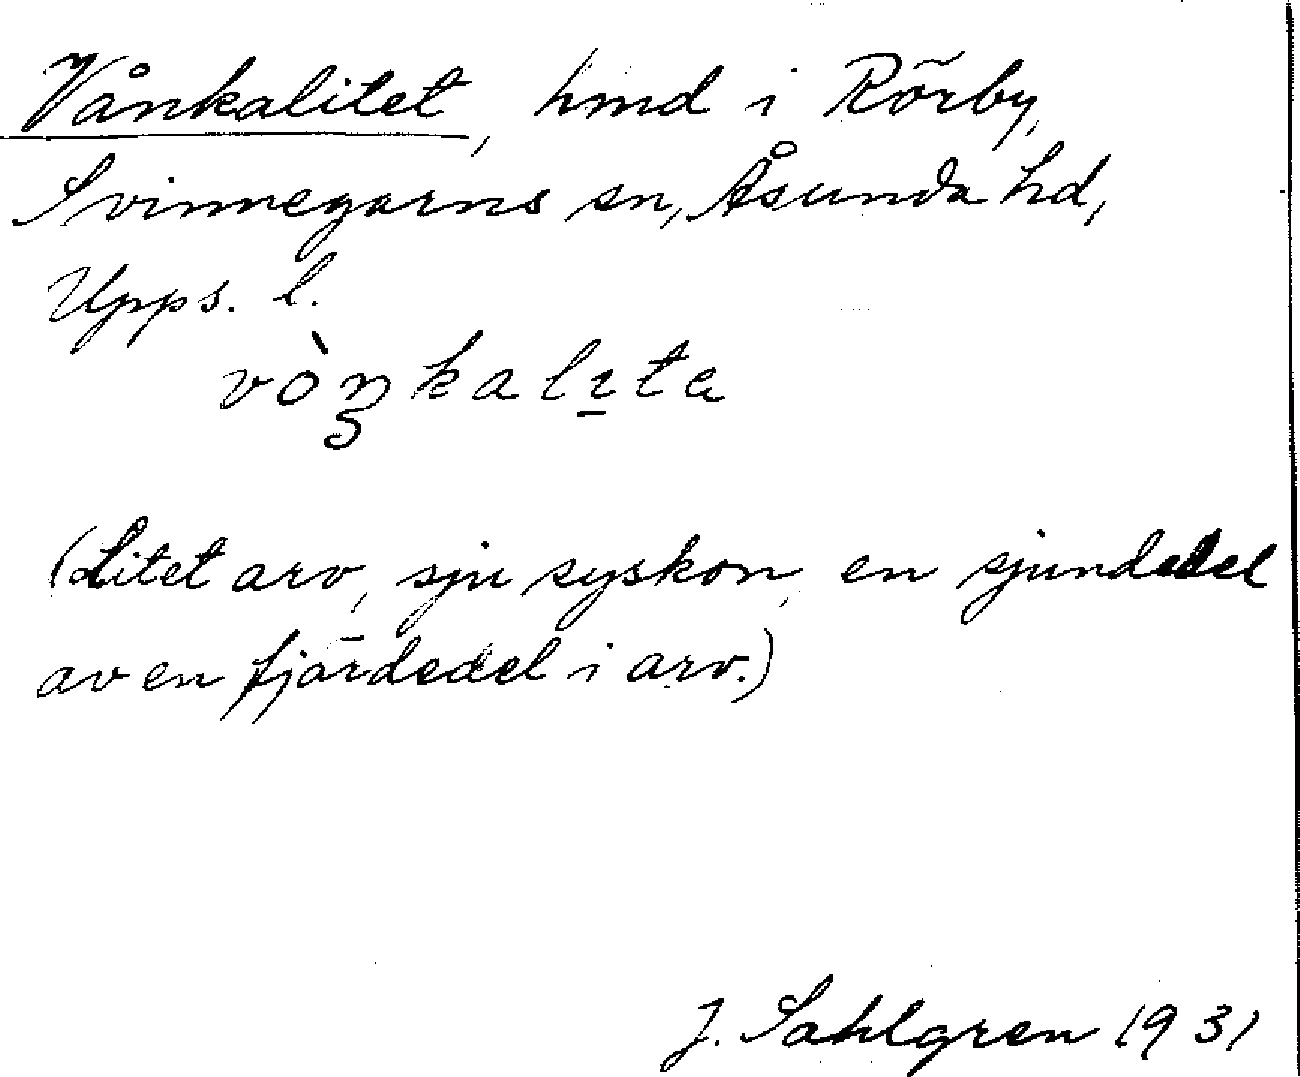 Vånkalitet, hmd i Rörby,
Svinnegarns sn, Åsunda hd,
Upps. l.
(Litet arv, sju syskon, en sjundedel
av en fjärdedel i arv.)
J. Sahlgren 1931